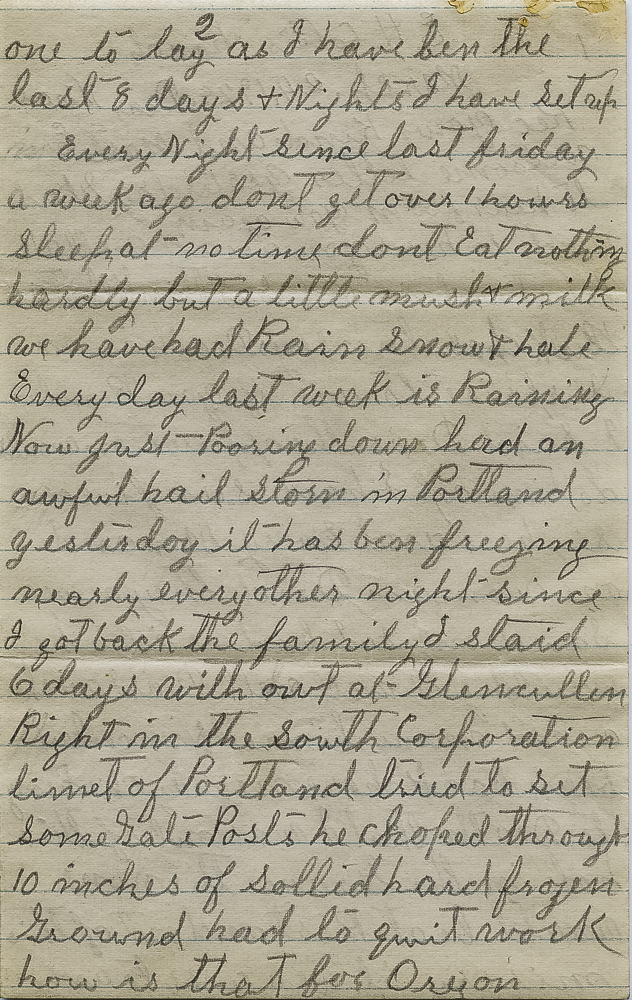 2
one to lay as I have ben the
last 8 days & Nights I have set up
Every Night since last friday
a week ago dont get over 1 howrs
sleep at no time dont Eat nothing
hardly but a little mush & milk
we have had Rain Snow & hale
Every day last week is Raining
Now Just Poring down had an
awful hail Storn in Portland
yesterday it has ben freezing
nearly every other night since
I got back the family I staid
6 days with owt at Glencullen
Right in the Sowth Corporation
limet of Portland tried to set
some Gate Posts he choped through
10 inches of sollid hard frozen
Grownd had to quit work
how is that for Oregon